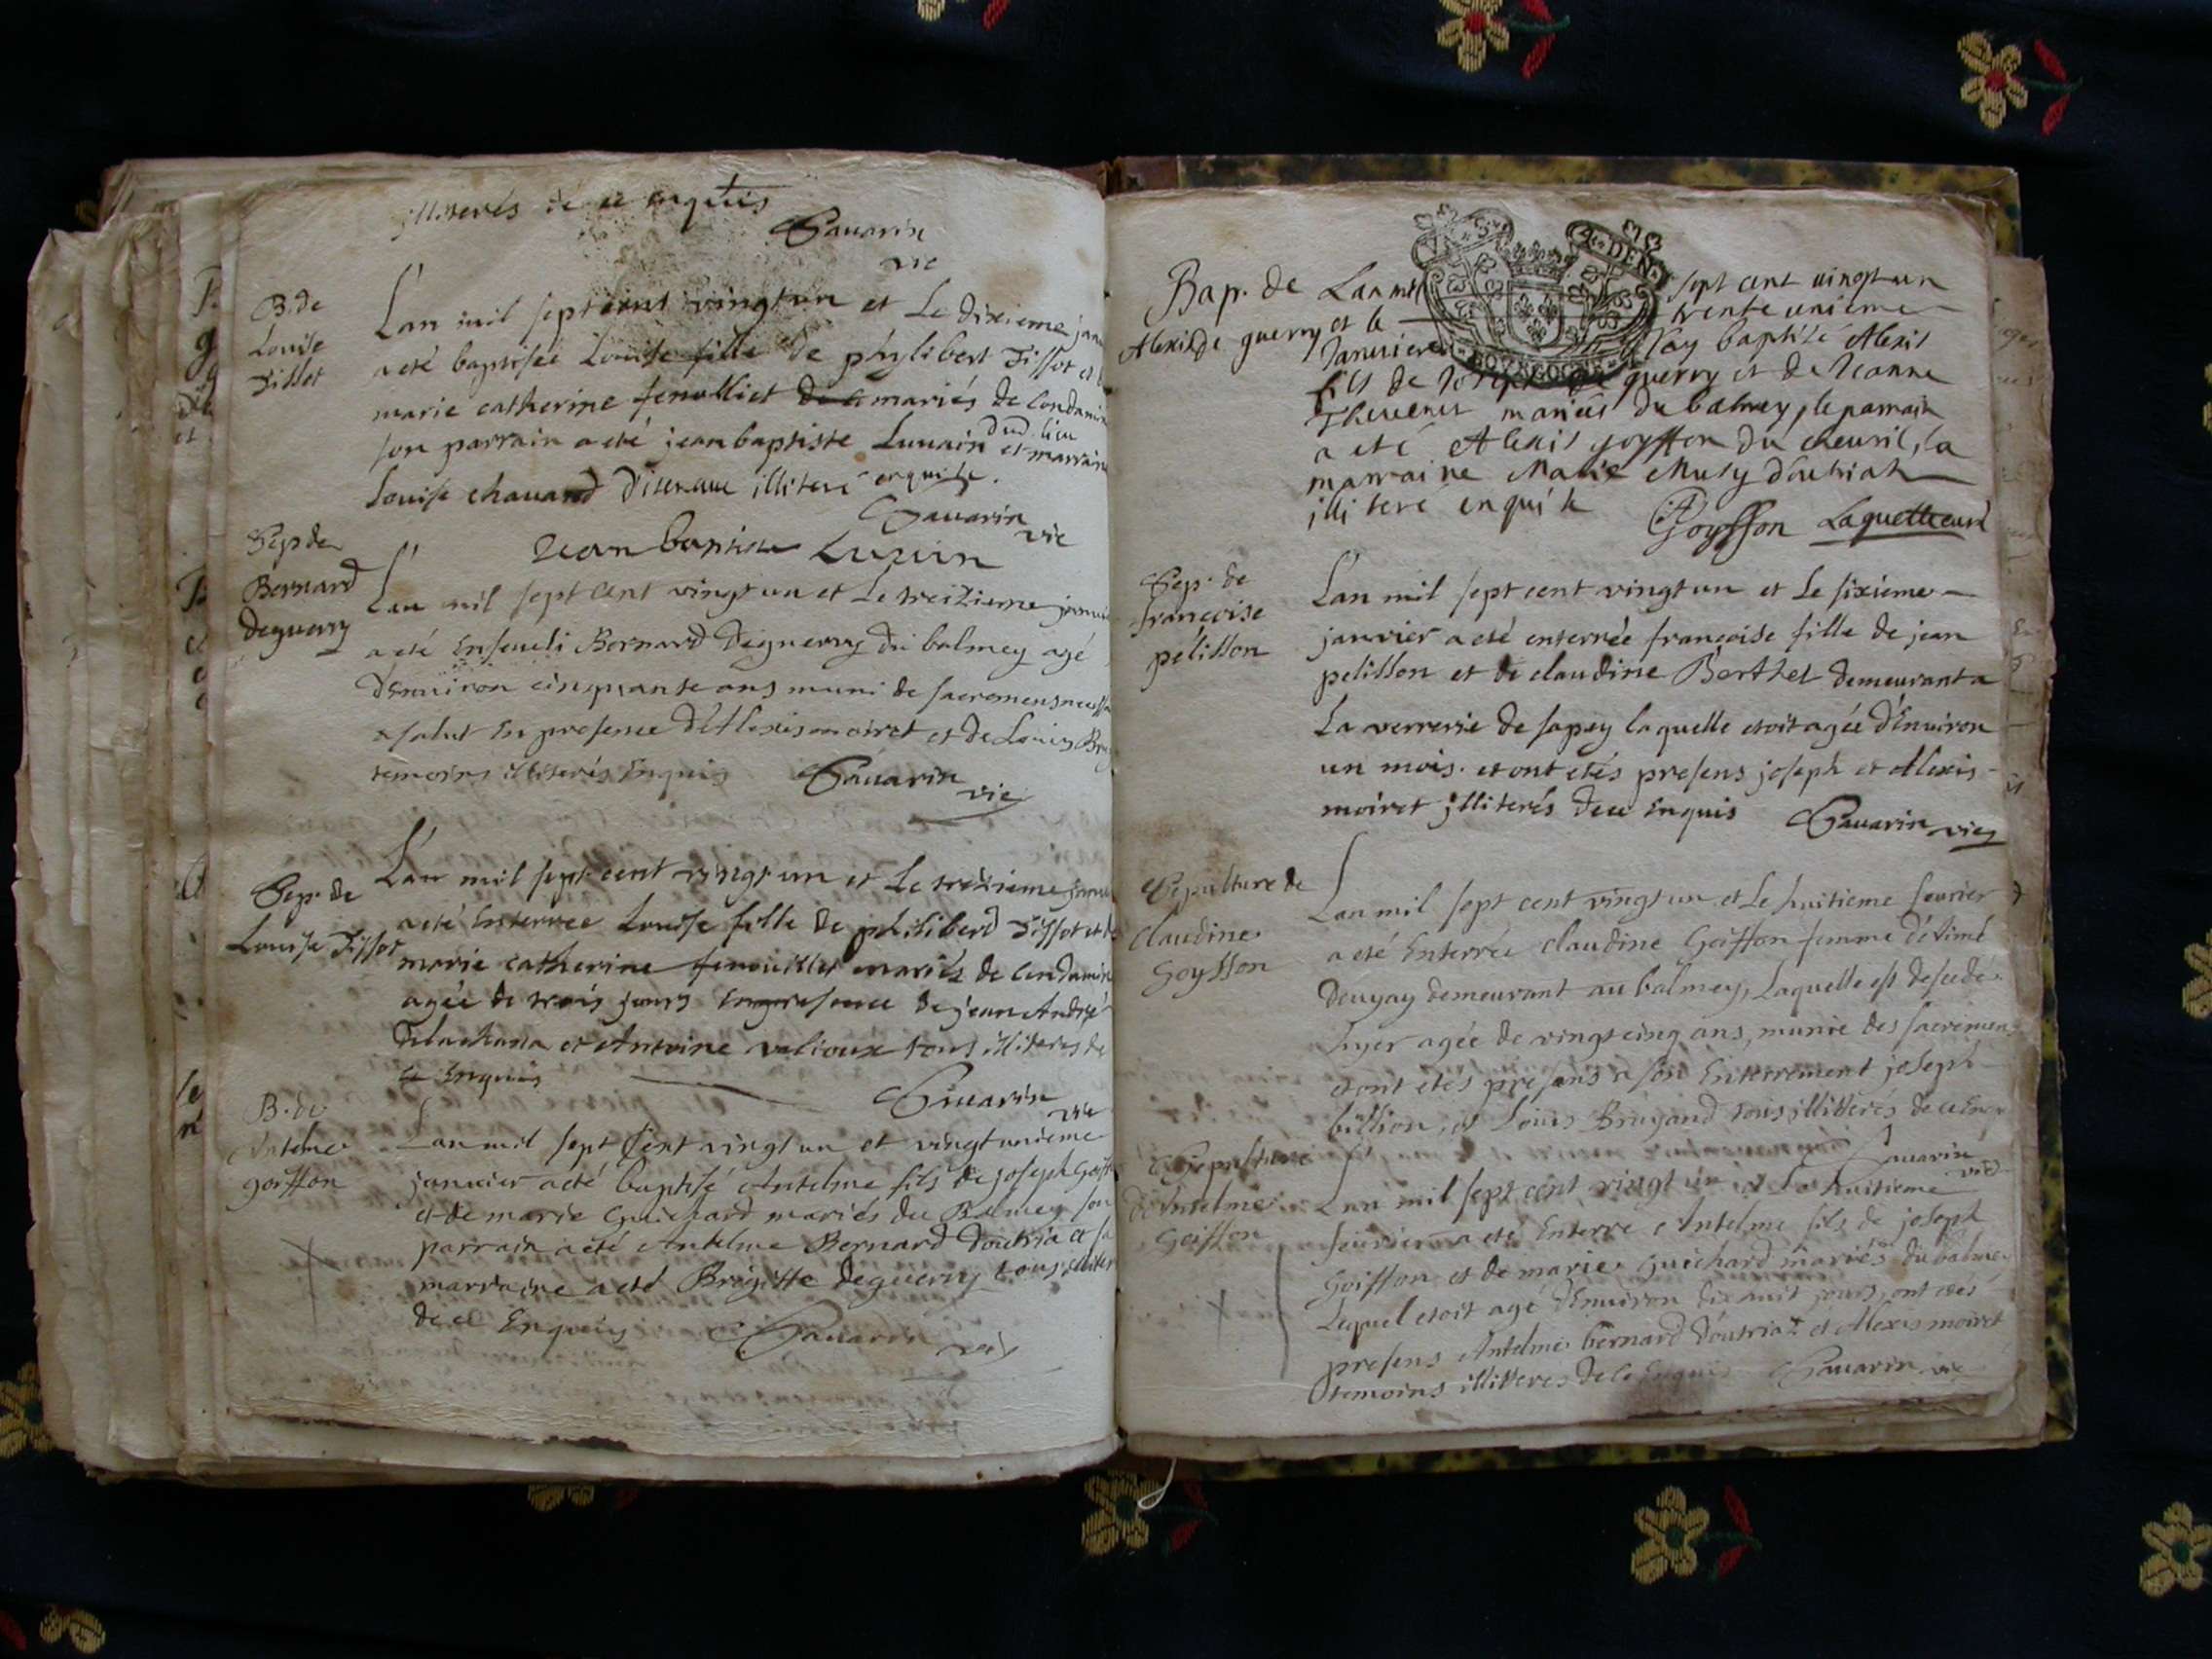 illiterés de ce enquis
Savarin
vic
B. de
Louise
Tissot
L'an mil sept cent vingt un et Le dixieme
a eté baptisée Louise fille de phylibert Tissot et
marie catherine fenolliet mariés de Condamine
son parrain a eté jean baptiste Luuain dud. lieu et marraine
Louise chauand illiteré enquise.
Savarin
vic
Jean baptiste
Sep de
Bernard
deguerry
L'an mil sept cent vingt un et Le treizieme
a eté Enseueli Bernard Deguerry du balmey agé
d'Enuiron cinquante ans muni de sacremens
salut En presence d'Alexis moiret et de Louis
temoins illiterés Enquis Savarin
vic
Sep. de
Louise Tissot
L'an mil sept cent vingt un et Le treizieme
a eté Enterree Louise fille de philiberd Tissot et
marie catherine fenouillet mariés de Condamine
agée de trois jours En presence de jean André
et Antoine tous illiterés de
ce Enquis
Savarin
vic
B. de
Antelme
goiffon
L'an mil sept Cent vingt un et vingt unieme
januier a eté baptisé Antelme fils de joseph
et de marie Guichard mariés du Balmey son
parrain a eté Antelme Bernard Doutria et sa
marraine a eté Brigitte deguerry tous
de ce Enquis Savarin
vic
V. S.
4. DEN.
BOURGOGNE
Bap. de
Alexis de guerry
L'an mil sept cent uingt un
et le trente unieme
Januier J'ay baptisé Alexis
fils de Joseph de guerry et de Jeanne
Theuenet mariés du balmey, le parrain
a eté Alexis goyffon du cheuril, la
marraine Marie Musy d'outriah
illiteré enqui le
Goyffon Laguette curé
Sep. de
françoise
pélisson
L'an mil sept cent vingt un et Le sixieme
januier a eté enterrée françoise fille de jean
pelisson et de claudine Berthet demeurant a
La verrerie de sapey laquelle etoit agée d'Enuiron
un mois. et ont etés presens joseph et Alexis
moiret illiterés de ce Enquis Savarin vic
Sepulture de
Claudine
Goyffon
L'an mil sept cent vingt un et Le huitieme feurier
a eté Enterrée claudine Goiffon femme d'Aimé
demeurant au balmey, Laquelle est
hyer agée de vingt cinq ans, munie des
et ont etés presens a son Enterrement joseph
billion, et Louis Bruyand tous illiterés de ce
Savarin
vic
Sepulture
d'Antelme
Goiffon
L'an mil sept cent vingt un et Le huitieme
feurier a eté Enterré Antelme fils de joseph
Goiffon et de marie guichard mariés du balmey
Lequel etoit agé d'Enuiron dix auit jours, ont etés
presens Antelme bernard d'outriat et Alexis moiret
temoins illiterés de ce Enquis Savarin vic